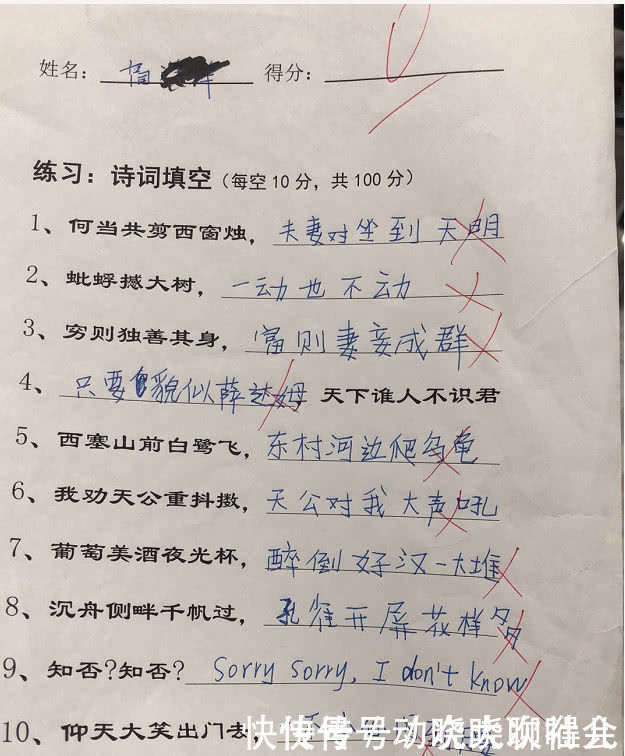 姓名： 得分：
练习：诗词填空（每空10分，共100分）
1、何当共剪西窗烛，夫妻对坐到天明
2、蚍蜉撼大树，一动也不动
3、穷则独善其身，富则妻妾成群
4、只要貌似薛达姆 天下谁人不识君
5、西塞山前白鹭飞，东村河边爬乌龟
6、我劝天公重抖擞，天公对我大声吼
7、葡萄美酒夜光杯，醉倒好汉一大堆
8、沉舟侧畔千帆过，孔雀开屏花样多
9、知否?知否? Sorry sorry, I don't know
10、仰天大笑出门去